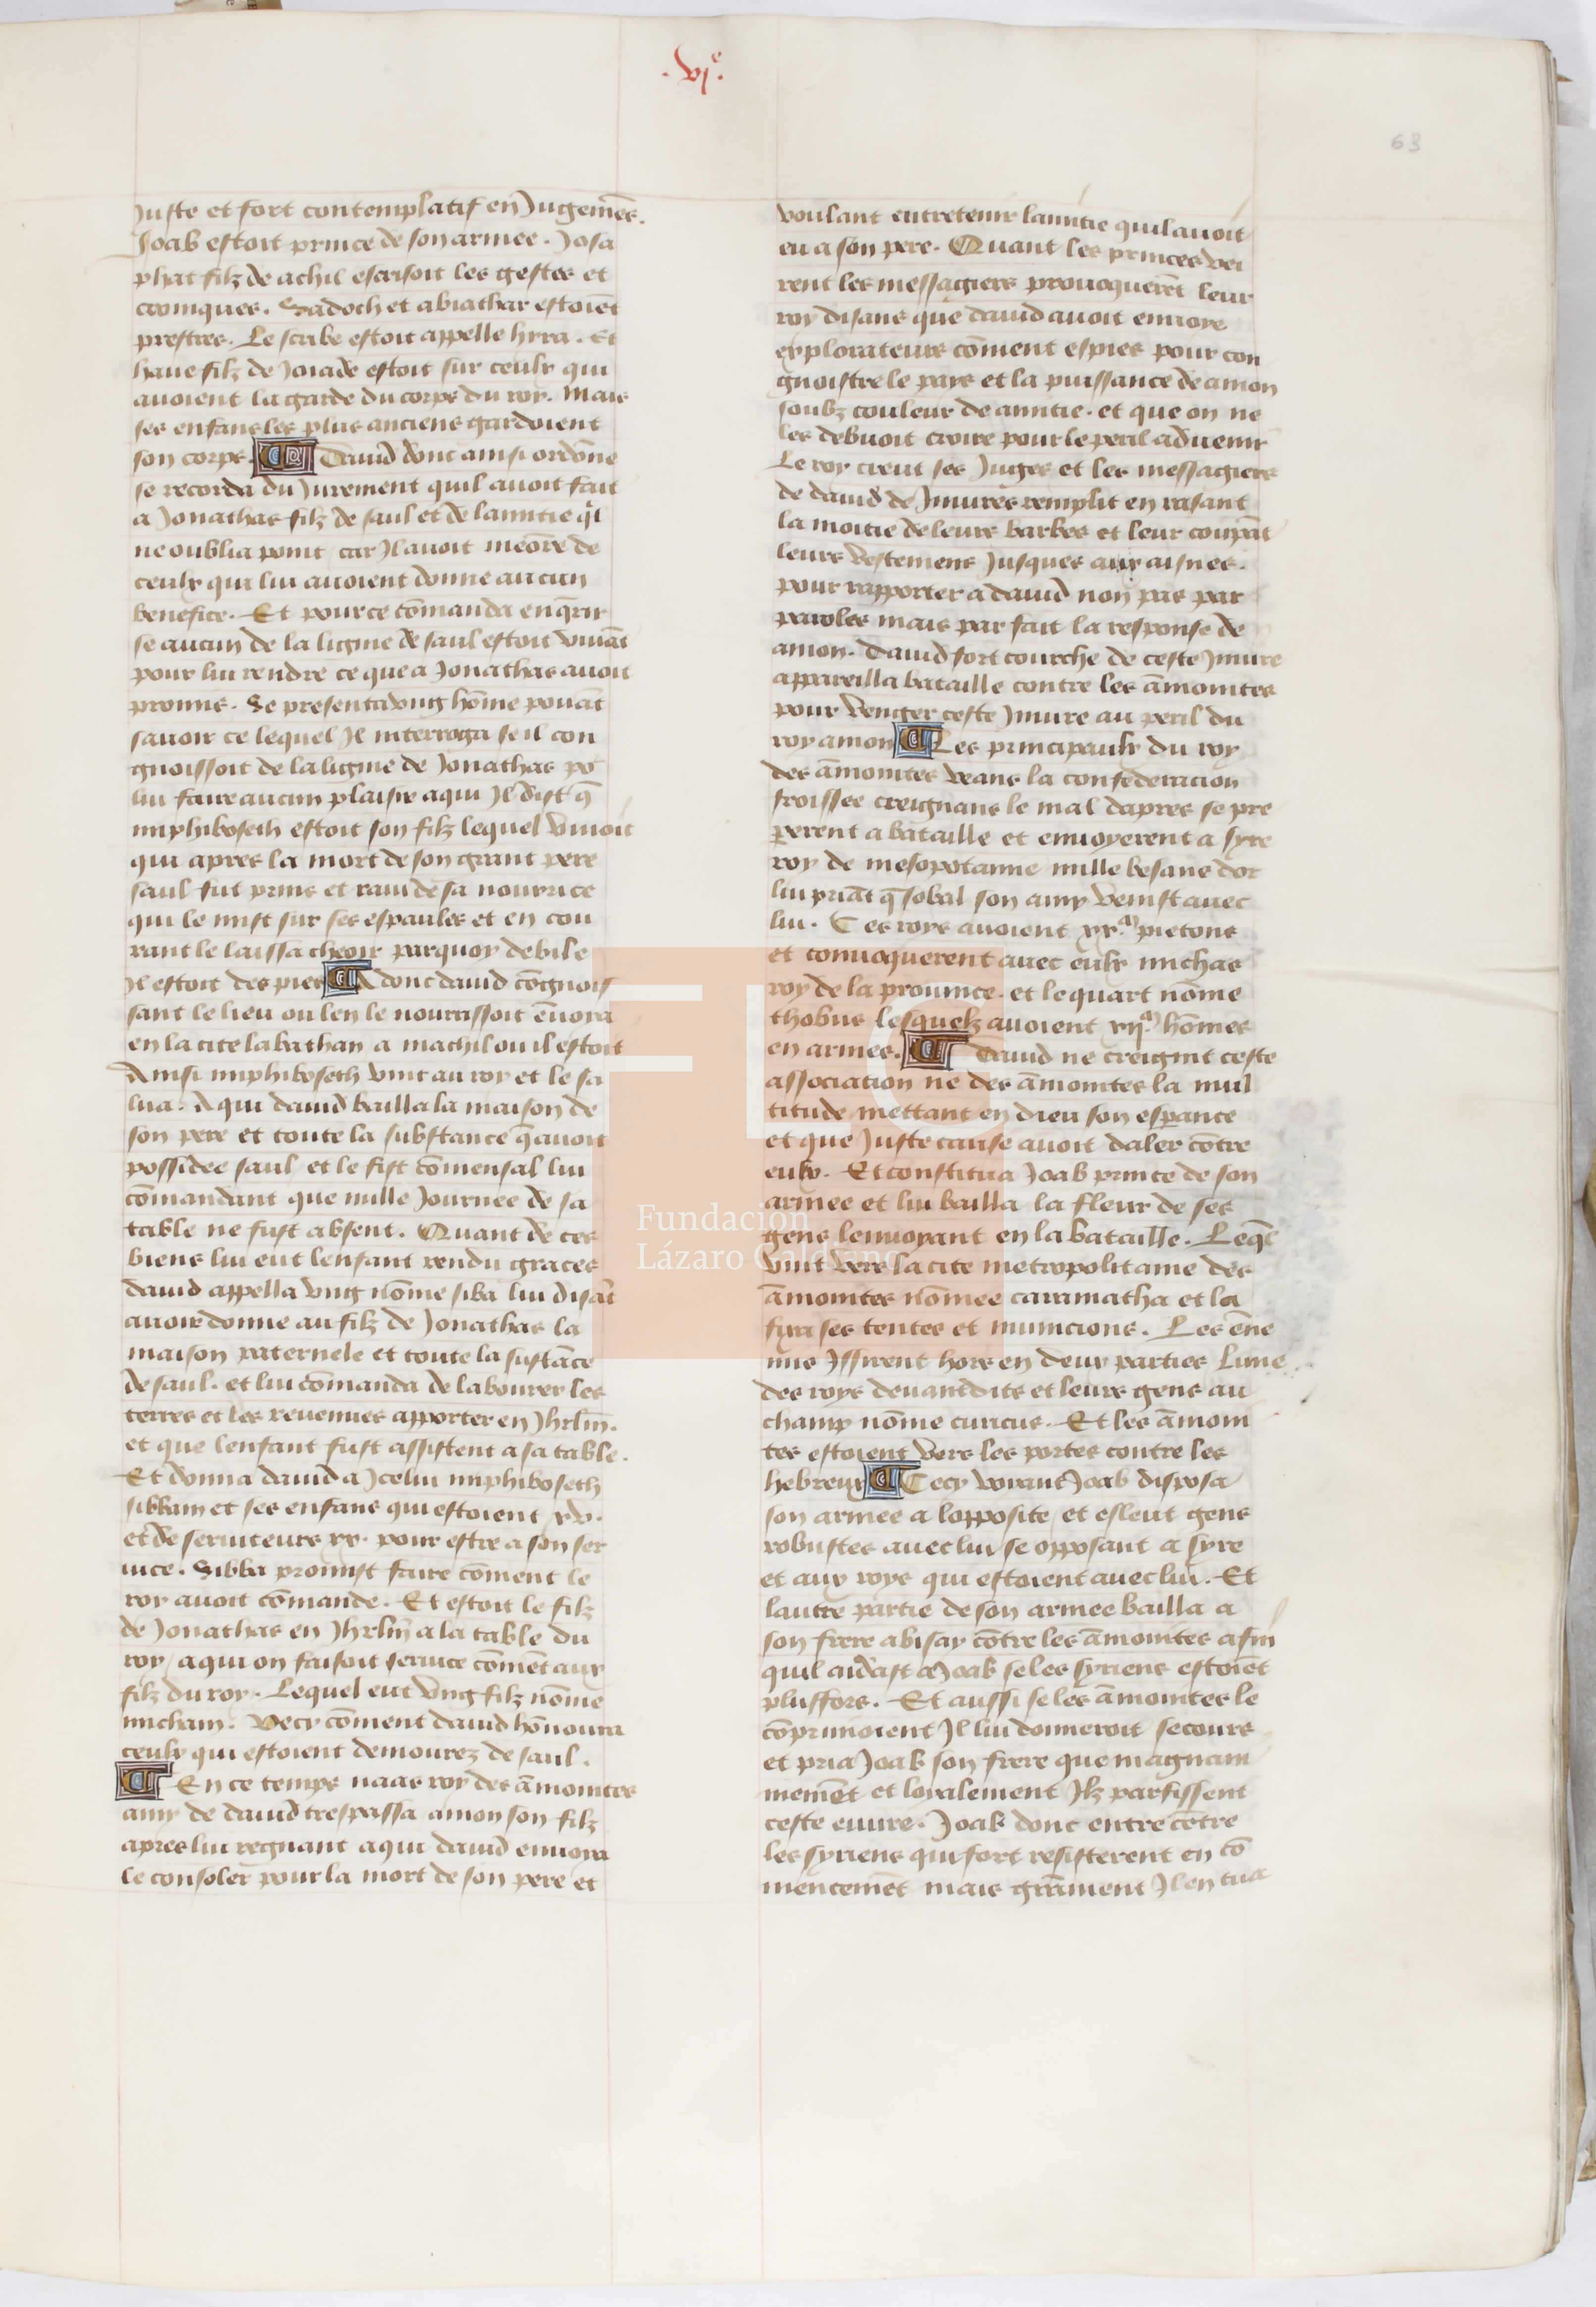 .vjͤ.
63
Juste et fort contemplatif en Jugemēs.
Joab estoit prince de son armee. Josa
phat filz de achil escrisoit les gestes et
croniques. Sadoch et abiathar estoiēt
prestres. Le scribe estoit appelle hyra. Et
hane filz de Joiade estoit sur ceulx qui
avoient la garde du corps du roy. Mais
ses enfans les plus anciens gardoient
son corps. David donc ainsi ordōne
se recorda du Jurement quil avoit fait
a Jonathas filz de saul et de lamitie ql
ne oublia point car Jl avoit meōre de
ceulx qui lui avoient donne aucun
benefice. Et pource cōmanda enqrir
se aucun de la lignie de saul estoit vivāt
pour lui rendre ce que a Jonathas avoit
promis. Se presenta ung hōme pouāt
savoir ce lequel Jl interroga se il con
gnoissoit de la lignie de Jonathas po
lui faire aucun plaisir a qui Jl dist q̄
miphiboseth estoit son filz lequel vivoit
qui apres la mort de son grant pere
saul fut prins et ravi de sa nourrice
qui le mist sur ses espaules et en cou
rant le laissa cheoir parquoy debile
Jl estoit des pies A donc david cōgnois
sant le lieu ou len le nourrissoit ēnvoya
en la cite labathan a machil ou il estoit
Ainsi miphiboseth vint au roy et le sa
lua. A qui david bailla la maison de
son pere et toute la substance q̄ avoit
possidee saul et le fist cōmensal lui
cōmandant que nulle Journee de sa
table ne fust absent. Quant de ces
biens lui eut lenfant rendu graces
david appella ung nōme siba lui disāt
avoir donne au filz de Jonathas la
maison paternele et toute la sustāce
de saul. et lui cōmanda de labourer les
terres et les revenues apporter en Jhrlm̄.
et que lenfant fust assistent a sa table.
Et donna david a Jcelui miphiboseth
sibbam et ses enfans qui estoient xv.
et de serviteurs xx. pour estre a son ser
vice. Sibba promist faire cōment le
roy avoit cōmande. Et estoit le filz
de Jonathas en Jhrlm̄ a la table du
roy / a qui on faisoit service cōmēt aux
filz du roy. Lequel eut ung filz nōme
micham. Vecy cōment david hōnoura
ceulx qui estoient demourez de saul.
En ce temps naas roy des āmonites
amy de david trespassa amon son filz
apres lui regnant a qui david envoya
le consoler pour la mort de son pere et
voulant entretenir lamitie quil avoit
eu a son pere. Quant les princes vei
rent les messagiers provoquerēt leur
roy disans que david avoit envoye
explorateurs cōment espies pour con
gnoistre le pays et la puissance de amon
soubz couleur de amitie. et que on ne
les debvoit croire pour le peril advenir
Le roy creut ses Juges et les messagiers
de david de Jniures remplit en rasant
la moitie de leurs barbes et leur coupāt
leurs vestemens Jusques aux aisnes.
pour rapporter a david non pas par
paroles mais par fait la response de
amon. David fort courche de ceste Jniure
appareilla bataille contre les āmonites
pour venger ceste Jniure au peril du
roy amon Les principaulx du roy
des āmonites veans la confederacion
froissee creignans le mal dapres se pre
perent a bataille et envoyerent a syre
roy de mesopotamie mille besans dor
lui priāt q̄ sobal son amy venist avec
lui. Ces roys avoient xx.ͫ pietons
et convoquerent avec eulx michas
roy de la province. et le quart nōme
thobus lesquelz avoient xijͫ. hōmes
en armes. David ne creignit ceste
association ne des āmonites la mul
titude mettant en dieu son espance
et que Juste cause avoit daler cōtre
eulx. Et constitua Joab prince de son
armee et lui bailla la fleur de ses
gens lenvoyant en la bataille. Leq̄l
vint vers la cite metropolitaine des
āmonites nōmee carramatha et la
fyxa ses tentes et municions. Les ēne
mis Jssirent hors en deux parties Lune
des roys devantdits et leurs gens au
champ nōme curicus. Et les āmoni
tes estoient vers les portes contre les
hebreux Cecy voiant Joab disposa
son armee a lopposite / et esleut gens
robustes avec lui se opposant a syre
et aux roys qui estoient avec lui. Et
lautre partie de son armee bailla a
son frere abisay cōtre les āmonites afin
quil aidast a Joab se les syriens estoiēt
plus fors. Et aussi se les āmonites le
cōprimoient Jl lui donneroit secours
et pria Joab son frere que magnani
memēt et loyalement Jlz parfissent
ceste euvre. Joab donc entre cōtre
les syriens qui fort resisterent en cō
mencemēt mais grāment Jl en tua